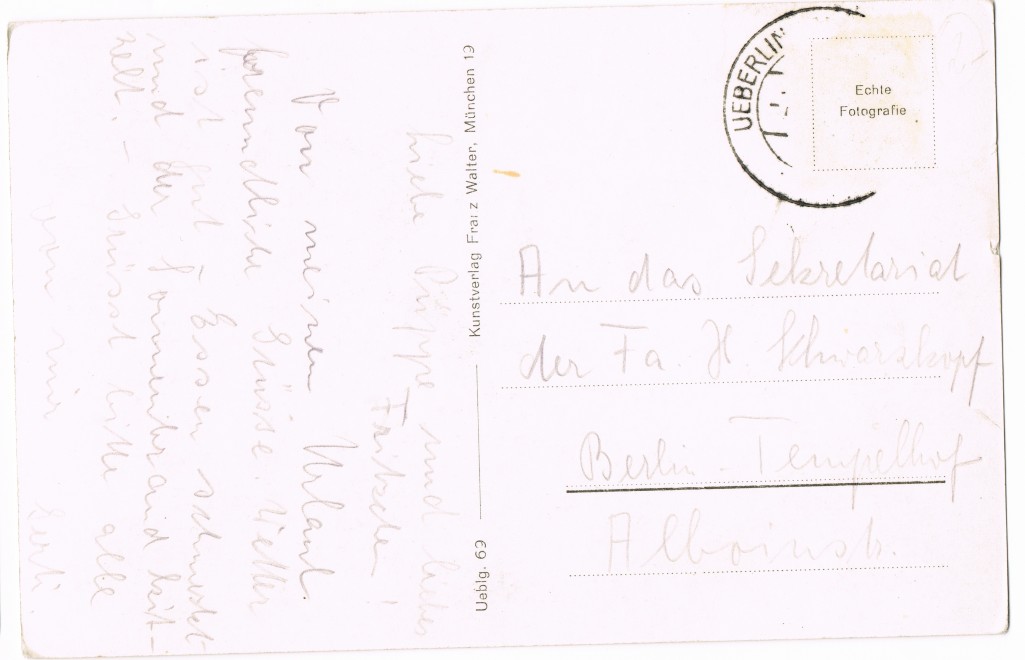 Liebe Puppe und liebes
Fritzchen!
Von meinem Urlaub
freundliche Grüsse. Wetter
ist gut, Essen schmeckt
und der Sonnenbrand
zelt. – Grüsst bitte alle
von mir
Kunstverlag Franz Walter, München 19
Ueblg. 69
UEBERLIN
Echte
Fotografie
An das Sekretariat
der Fa. H Schwarzkopf
Berlin - Tempelhof
Alboinstr.